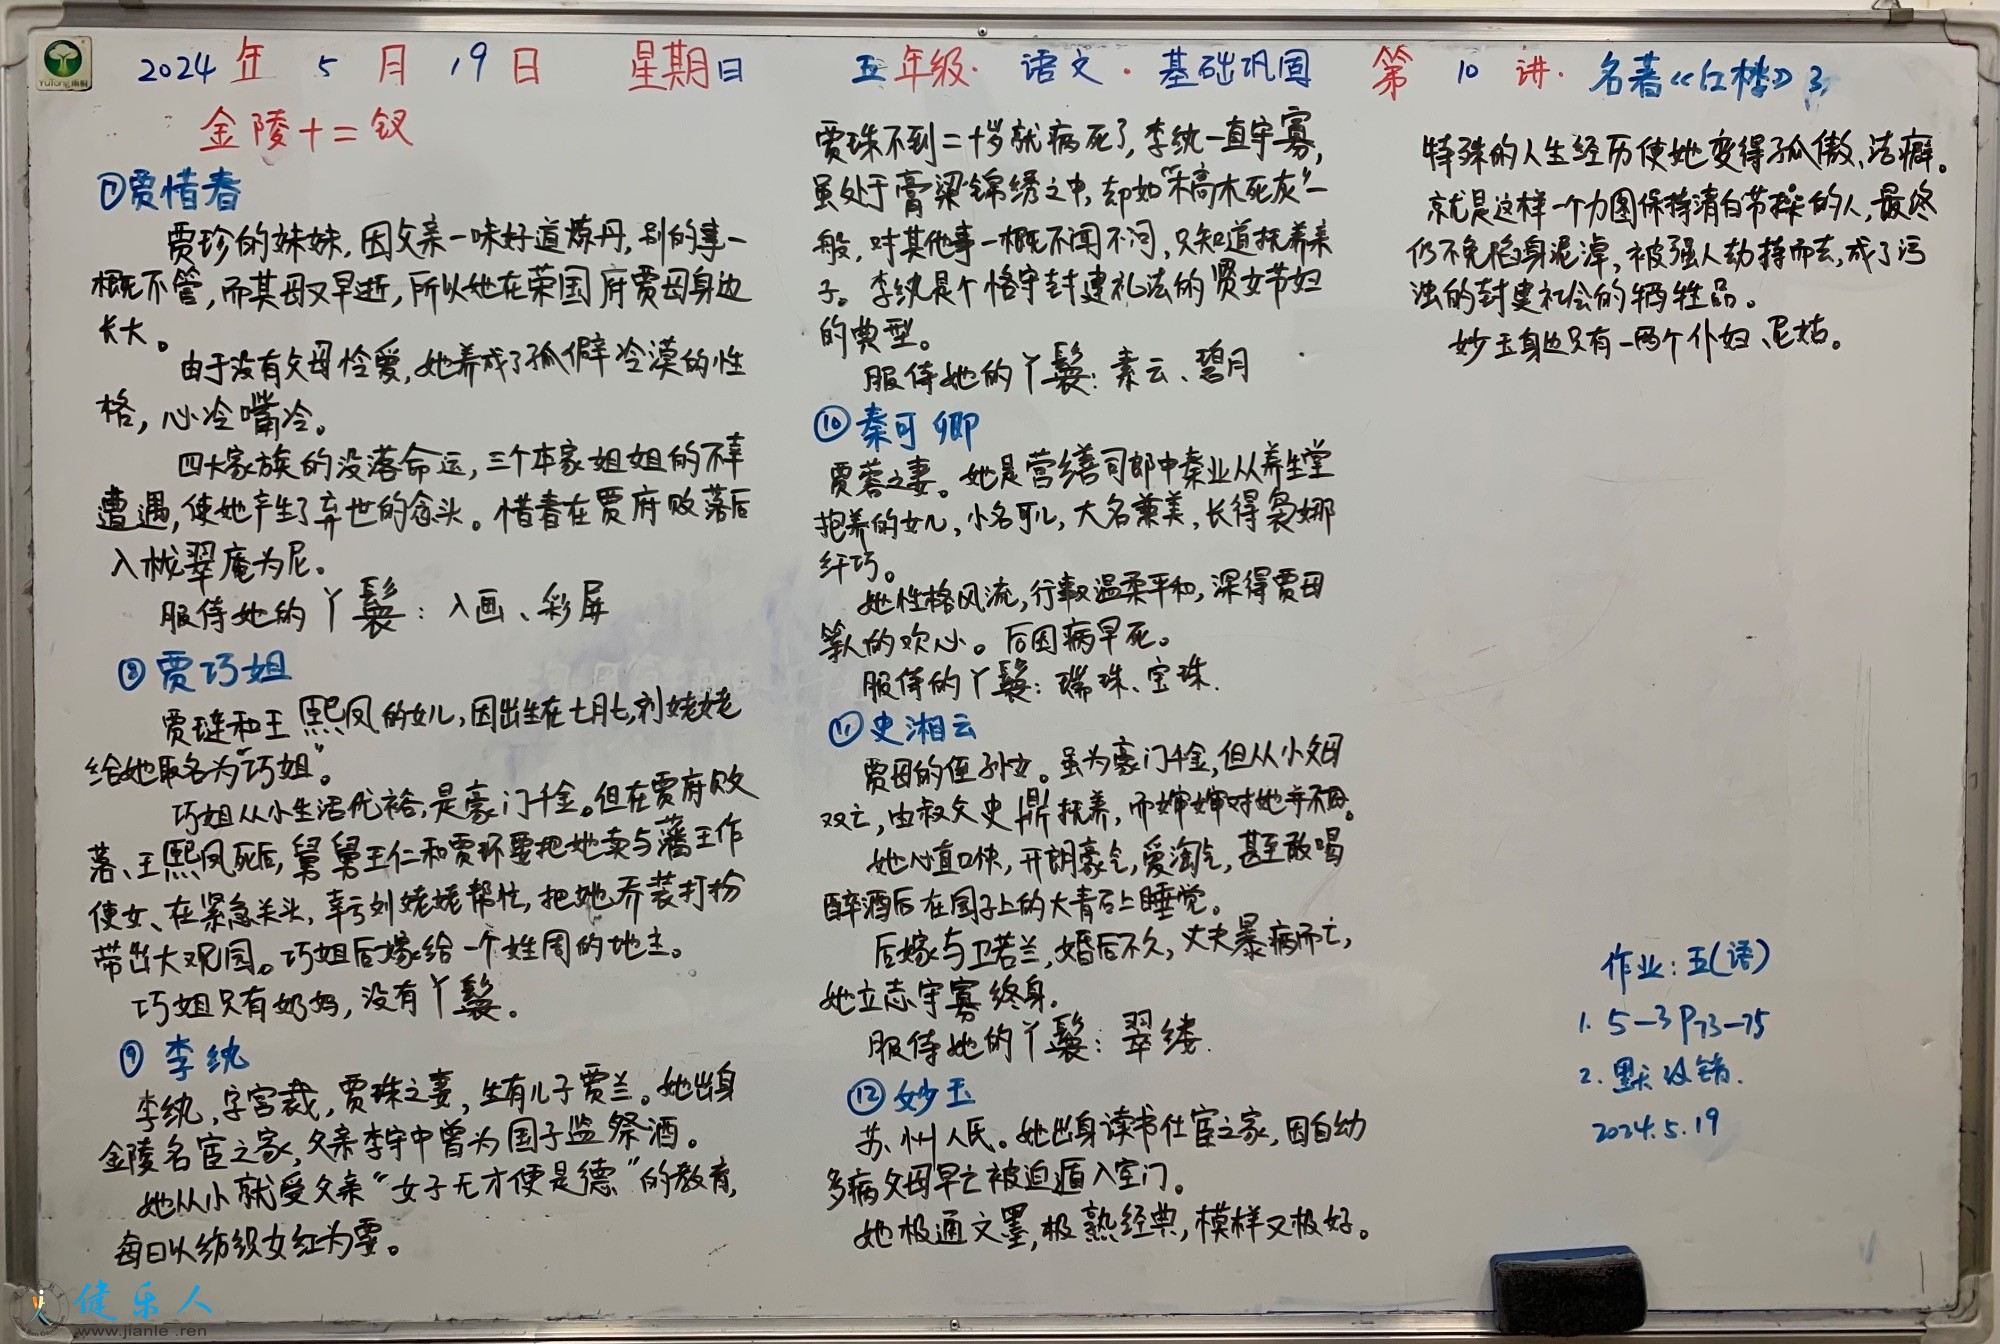 2024年 5月 19日 星期日 五年级·语文·基础巩固 第10讲·名著《红楼》3
金陵十二钗
⑦贾惜春
贾珍的妹妹,因父亲一味好道炼丹,别的事一
概不管,而其母又早逝,所以她在荣国府贾母身边
长大。
由于没有父母怜爱,她养成了孤僻冷漠的性
格,心冷嘴冷。
四大家族的没落命运,三个本家姐姐的不幸
遭遇,使她产生了弃世的念头。惜春在贾府败落后
入栊翠庵为尼。
服侍她的丫鬟:入画、彩屏
⑧贾巧姐
贾琏和王熙凤的女儿,因出生在七月七,刘姥姥
给她取名为“巧姐”。
巧姐从小生活优裕,是豪门千金。但在贾府败
落、王熙凤死后,舅舅王仁和贾环要把她卖与藩王作
使女、在紧急关头,幸亏刘姥姥帮忙,把她乔装打扮
带出大观园。巧姐后嫁给一个姓周的地主。
巧姐只有奶妈,没有丫鬟。
⑨李纨
李纨,字宫裁,贾珠之妻,生有儿子贾兰。她出身
金陵名宦之家,父亲李守中曾为国子监祭酒。
她从小就受父亲“女子无才便是德”的教育,
每日以纺织女红为要。
贾珠不到二十岁就病死了,李纨一直守寡,
虽处于膏粱锦绣之中,却如“槁木死灰”一
般,对其他事一概不闻不问,只知道抚养亲
子。李纨是个恪守封建礼法的贤女节妇
的典型。
服侍她的丫鬟:素云、碧月
⑩秦可卿
贾蓉之妻。她是营缮司郎中秦业从养生堂
抱养的女儿,小名可儿,大名兼美,长得袅娜
纤巧。
她性格风流,行事又温柔平和,深得贾母
等人的欢心。后因病早死。
服侍的丫鬟:瑞珠、宝珠.
⑪史湘云
贾母的侄孙女。虽为豪门千金,但从小父母
双亡,由叔父史鼎抚养,而婶婶对她并不好。
她心直口快,开朗豪气,爱淘气,甚至敢喝
醉酒后在园子上的大青石上睡觉。
后嫁与卫若兰,婚后不久,丈夫暴病而亡,
她立志守寡终身.
服侍她的丫鬟:翠缕.
⑫妙玉
苏州人氏。她出身读书仕宦之家,因自幼
多病父母早亡被迫遁入空门。
她极通文墨,极熟经典,模样又极好。
特殊的人生经历使她变得孤傲、洁癖。
就是这样一个力图保持清白节操的人,最终
仍不免陷身泥淖,被强人劫持而去,成了污
浊的封建社会的牺牲品。
妙玉身边只有一两个仆妇、尼姑。
作业:五(语)
1. 5-3 P73-75
2.
2024.5.19
YuTong雨桐
健乐人
www.jianle.ren